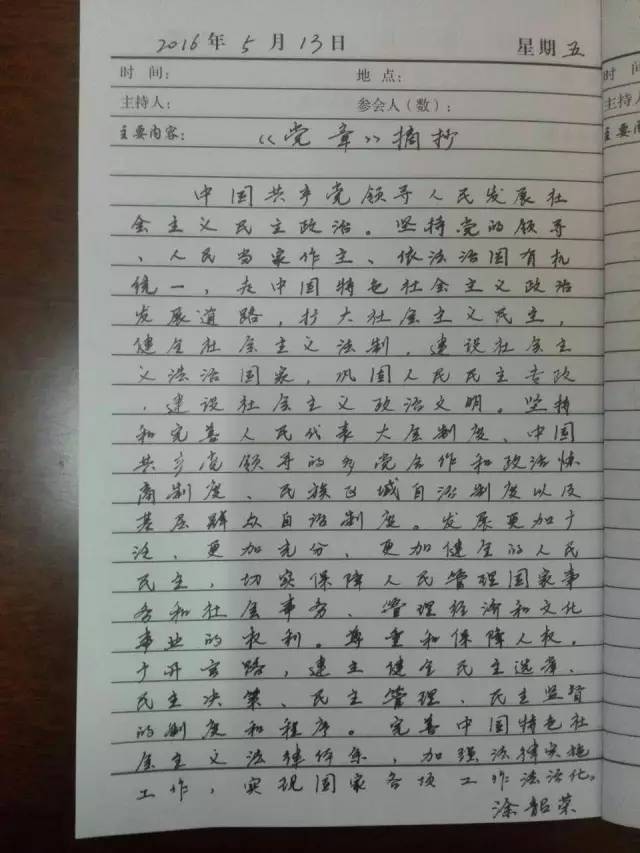 2016年 5月 13日 星期五
时 间： 地 点：
主持人： 参会人（数）：
主要内容： 《党章》摘抄
中国共产党领导人民发展社
会主义民主政治。坚持党的领导
、人民当家作主、依法治国有机
统一，走中国特色社会主义政治
发展道路，扩大社会主义民主，
健全社会主义法制，建设社会主
义法治国家，巩固人民民主专政
，建设社会主义政治文明。坚持
和完善人民代表大会制度、中国
共产党领导的多党合作和政治协
商制度、民族区域自治制度以及
基层群众自治制度。发展更加广
泛、更加充分、更加健全的人民
民主，切实保障人民管理国家事
务和社会事务、管理经济和文化
事业的权利。尊重和保障人权，
广开言路，建立健全民主选举、
民主决策、民主管理、民主监督
的制度和程序。完善中国特色社
会主义法律体系，加强法律实施
工作，实现国家各项工作法治化。
涂韶荣